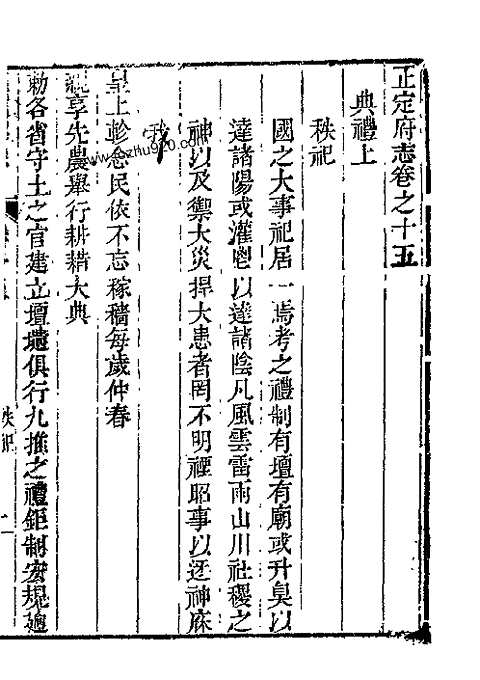 正定府志卷之十五
典禮上
秩祀
國之大事祀居一焉考之禮制有壇有廟或升臭以
達諸陽或灌鬯以達諸陰凡風雲雷雨山川社稷之
神以及禦大災捍大患者罔不明禋昭事以迓神庥
我
皇上軫念民依不忘稼穡每歲仲春
親享先農舉行耕耤大典
勅各省守土之官建立壇壝俱行九推之禮鉅制宏規
秩祀